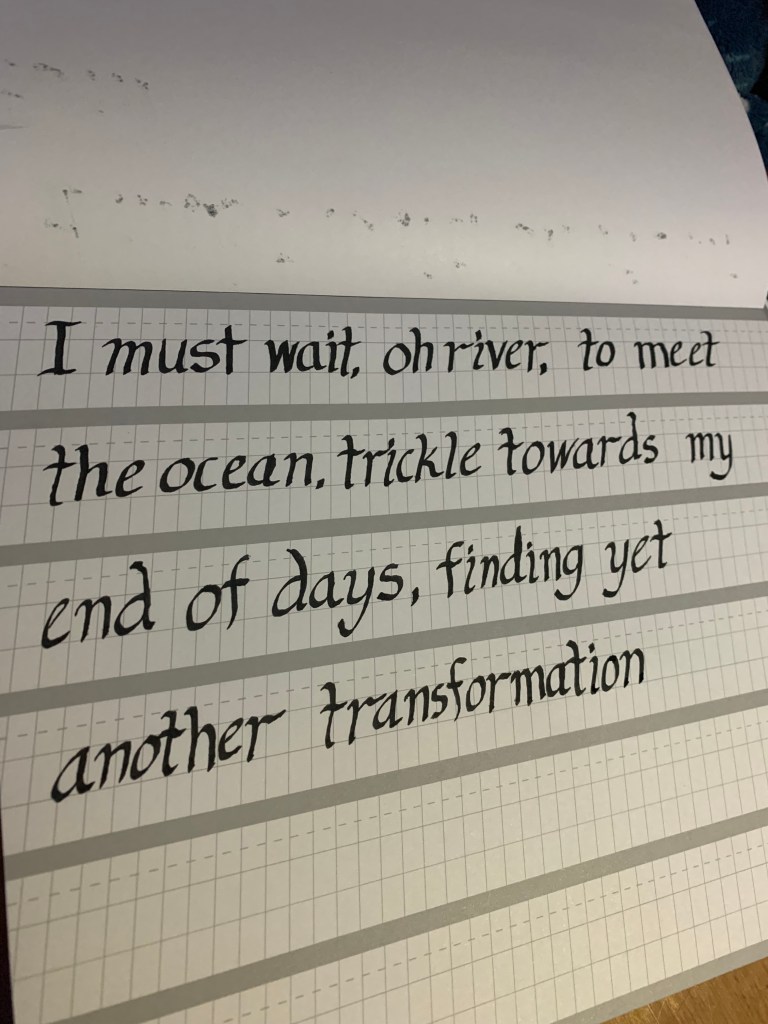 I must wait, oh river, to meet
the ocean, trickle towards my
end of days, finding yet
another transformation